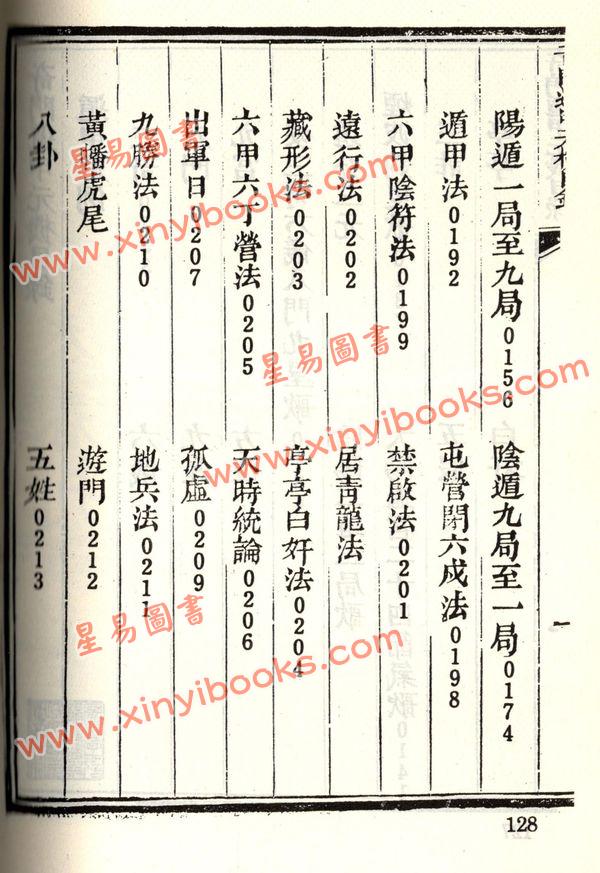 陽遁一局至九局0156 陰遁九局至一局0174
遁甲法0192 屯營閉六戍法0198
六甲陰符法0199 禁啟法0201
遠行法0202 居青龍法
藏形法0203 亭亭白奸法0204
六甲六丁營法0205 天時統論0206
出軍日0207 孤虛0209
九勝法0210 地兵法0211
黃旛虎尾 遊門0212
八卦 五姓0213
一
128
星易圖書
www.xinyibooks.com
星易圖書
www.xinyibooks.com
星易圖書
www.xinyibooks.com